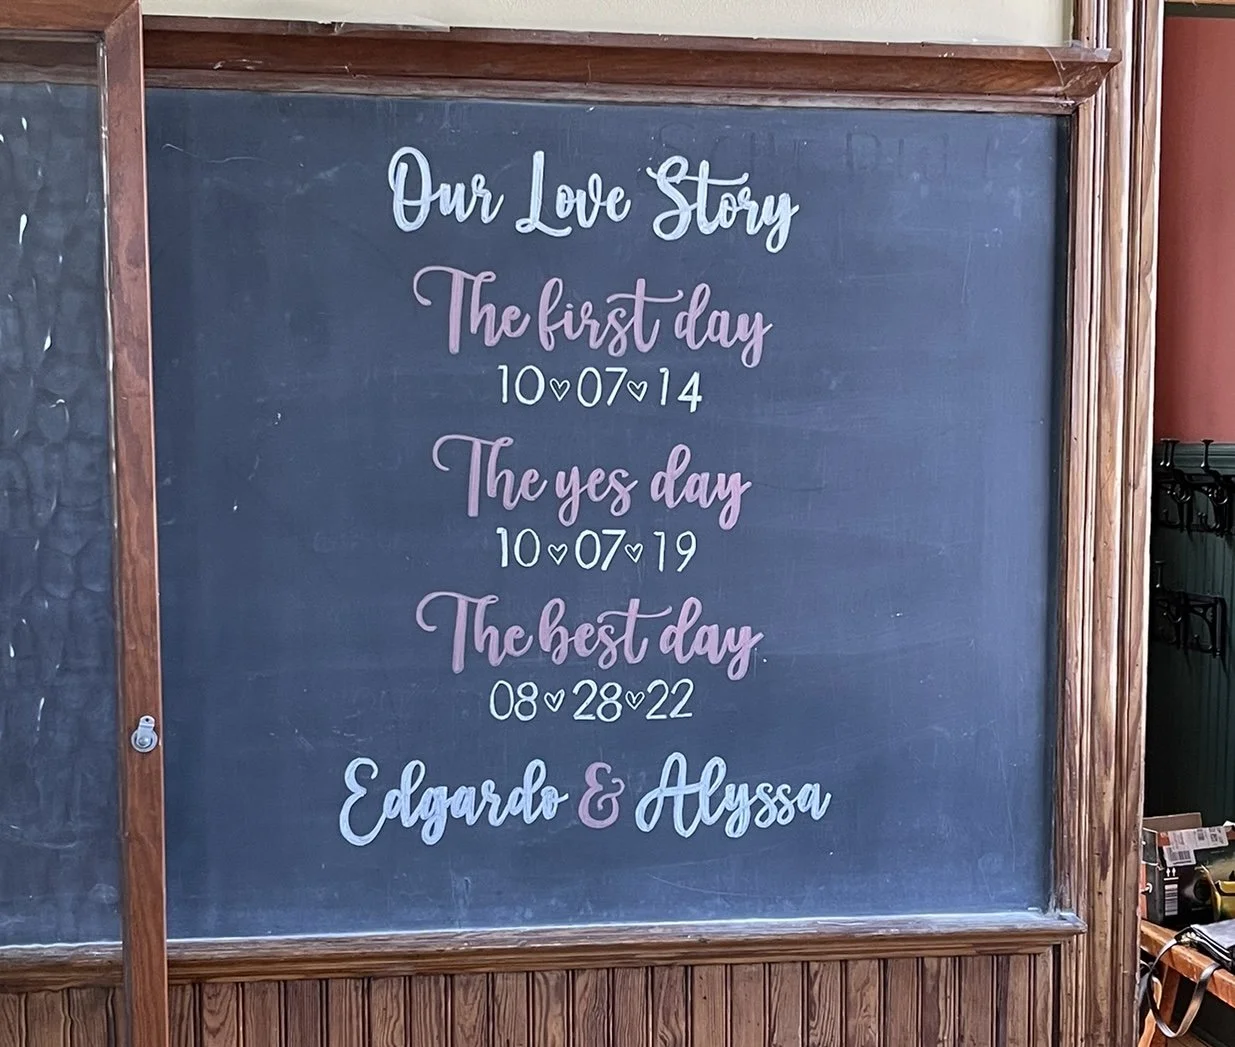 Our Love Story
The first day
10♡07♡14
The yes day
10♡07♡19
The best day
08♡28♡22
Edgardo & Alyssa